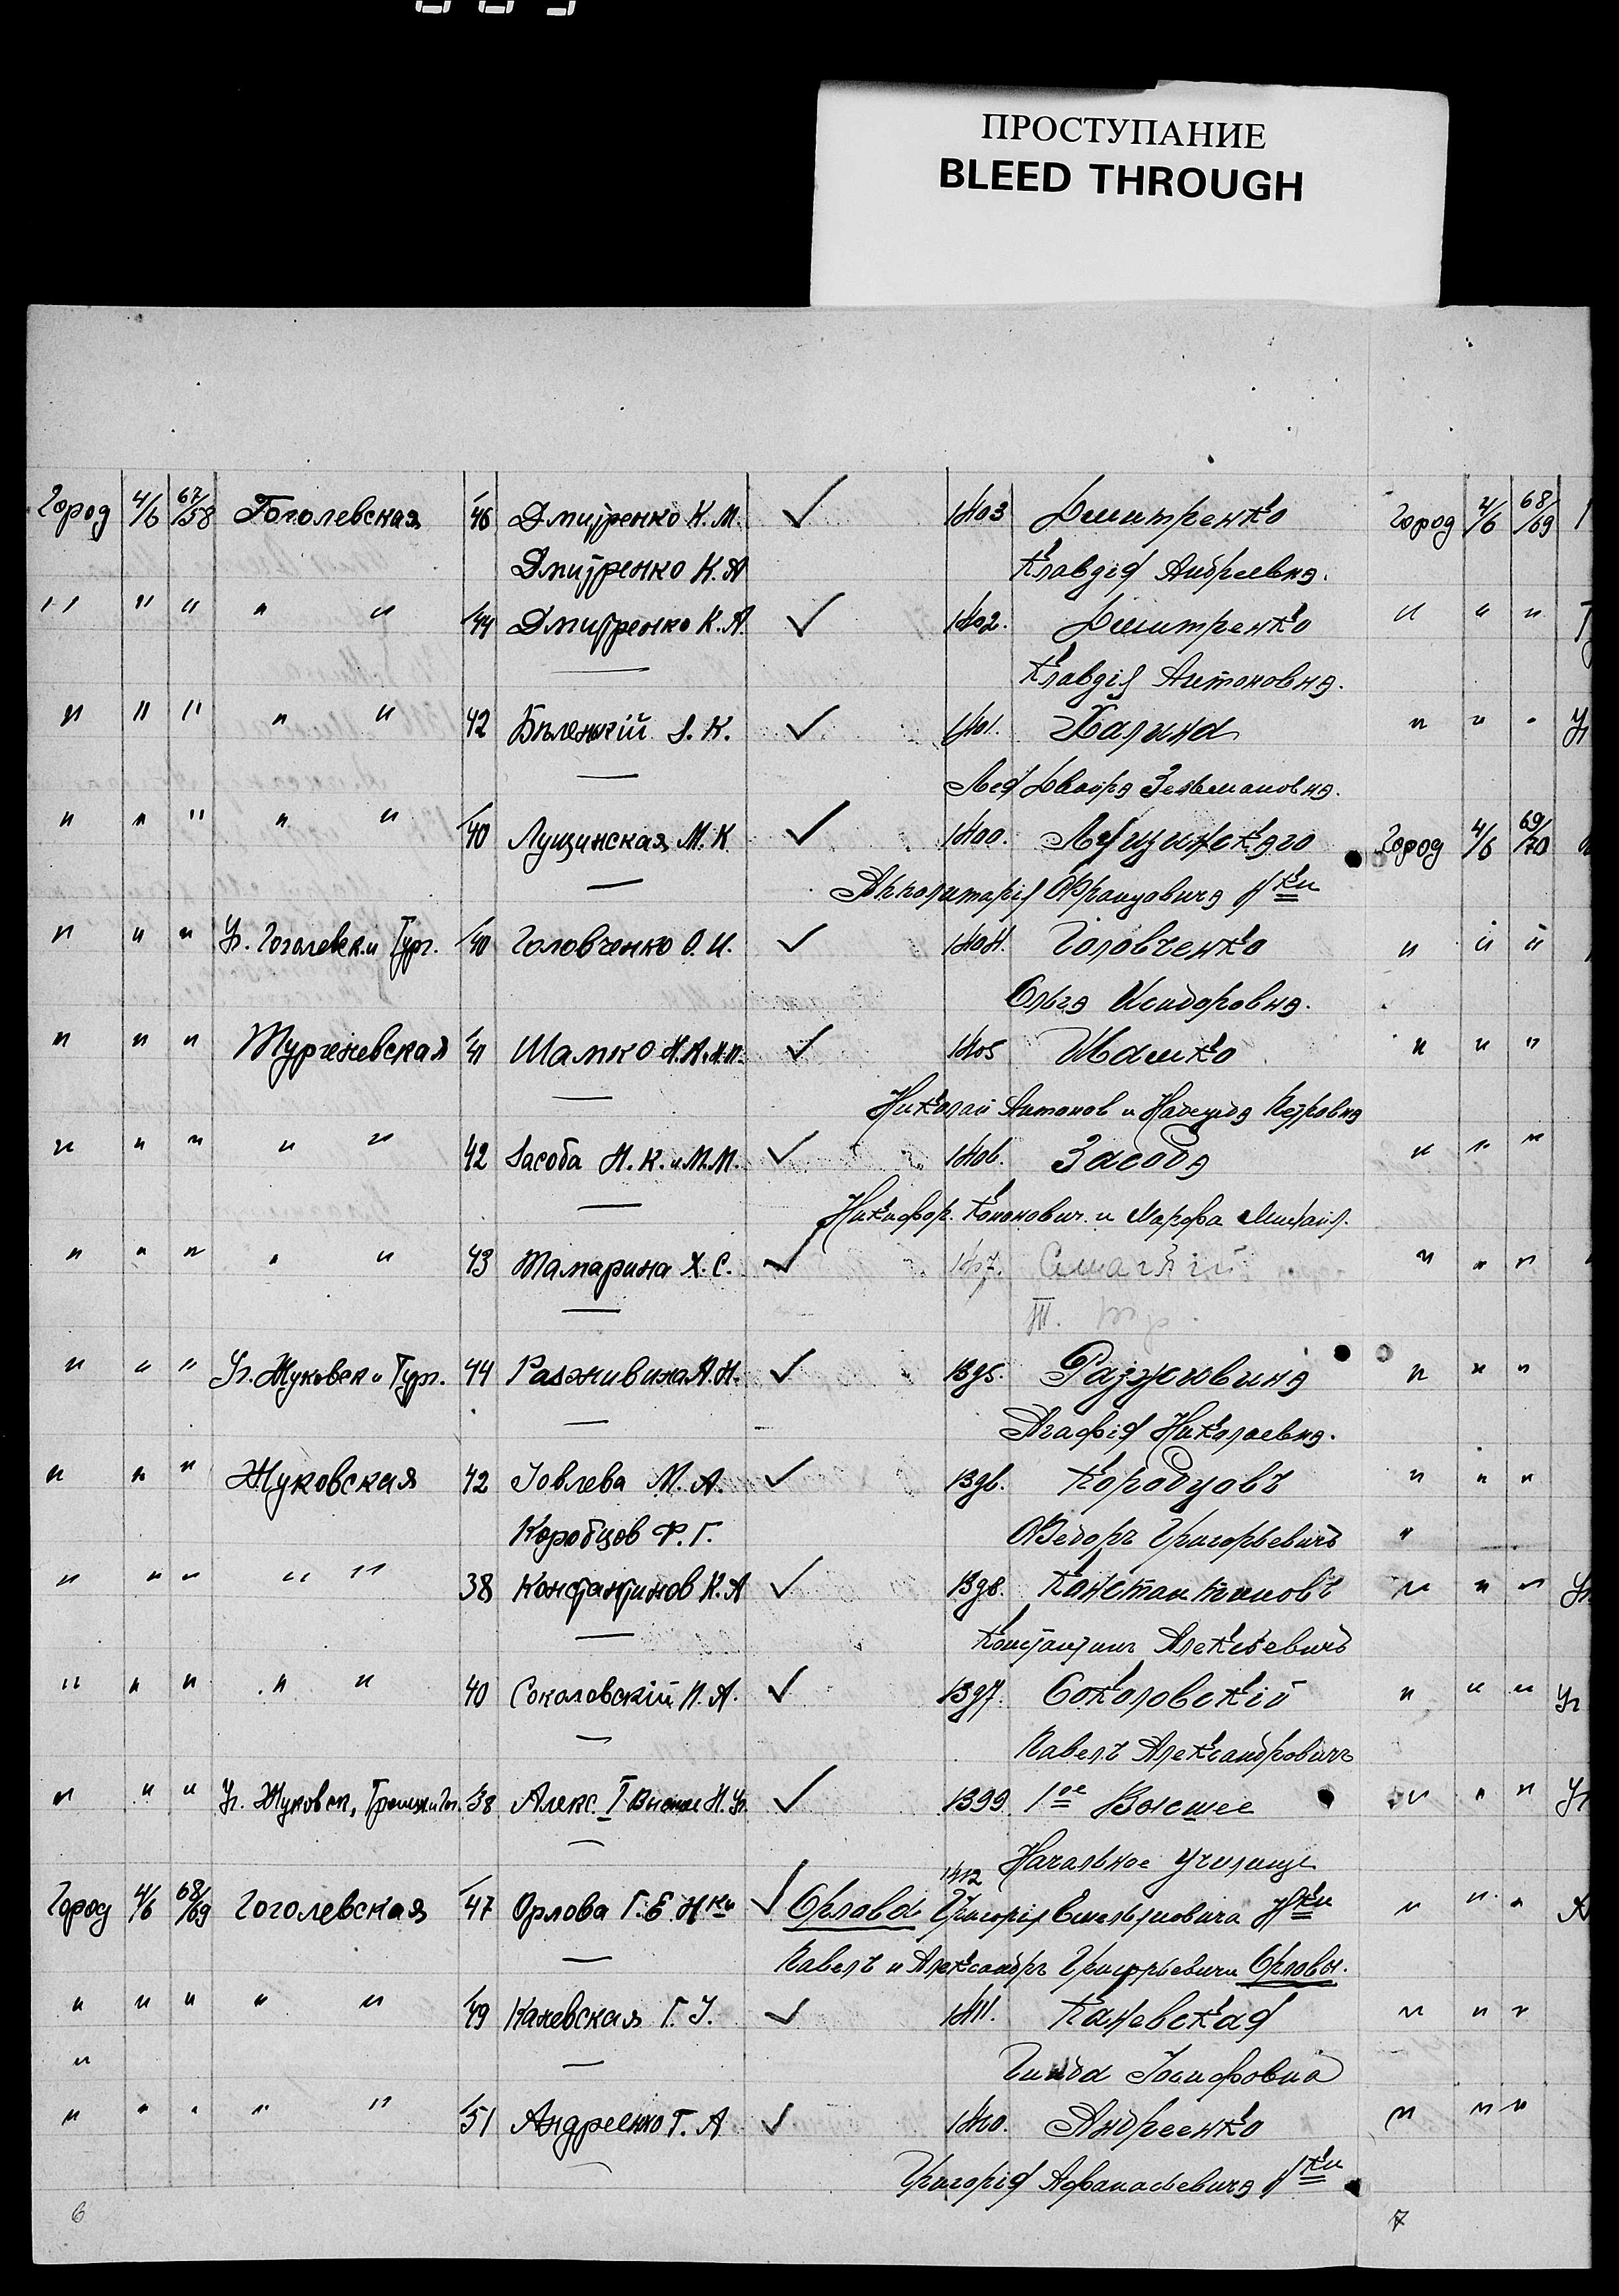 ПРОСТУПАНИЕ
BLEED THROUGH
Город 4/6 67/58 Гоголевская 46 Дмитренко К. М. ✓ 1403 Дмитренко Город 4/6 68/69
Дмитренко К. А Клавдія Андреевна.
" " " " " 44 Дмитренко К. А. ✓ 1402. Дмитренко " " "
Клавдія Антоновна.
" " " " " 42 Бѣленькій З. К. ✓ 1401. Халина " " " Уг
Двойра Зельмановна.
" " " " " 40 Лущинская М. К ✓ 1400. Лущинскаго Город 4/6 69/70
Францовича Н-ки
" " " Уг. Гоголевск. и Тург. 40 Головченко О. И. ✓ 1404. Головченко " " "
Ольга Исидоровна.
" " " Тургеневская 41 Шамко Н. А. и Н. П. ✓ 1405 Шамко " " "
Николай Антонов и Надежда Петровна
" " " " " 42 Засоба Н. К. и М. М. ✓ 1406. Засоба " " "
Никифор. Кононович. и Марфа Михайл.
" " " " " 43 Тамарина Х. С. ✓ 1407. " " "
III.
" " " Уг. Жуковск. и Тург. 44 Разживина А. Н. ✓ 1395. Разживина " " "
Агафія Николаевна.
" " " Жуковская 42 Іовлева М. А. ✓ 1396. Коробцовъ " " "
Коробцов Ф. Г. Федоръ Григорьевичъ "
" " " " " 38 Константинов К. А ✓ 1398. Константиновъ " " " Уг
Константинъ Алексѣевичъ
" " " " " 40 Соколовскій П. А. ✓ 1397. Соколовскій " " " Уг
Павелъ Александровичъ
" " " Уг. Жуковск., 38 Алекс. I Высшее Н. Уч. ✓ 1399 1ое Высшее " " " Уг
Начальное училище
1412
Город 4/6 68/69 Гоголевская 47 Орлова Г. Е. Н-ки ✓ Орлова Григорія Емельяновича Н-ки " " " А
Павелъ и Александръ Григорьевичи Орловы.
" " " " " 49 Каневская Г. І. ✓ 1411. Каневская " " "
" Гинда Іосифовна
" " " " " 51 Андреенко Г. А ✓ 1410. Андреенко " " "
Григорія Афанасьевича Н-ки
6 7